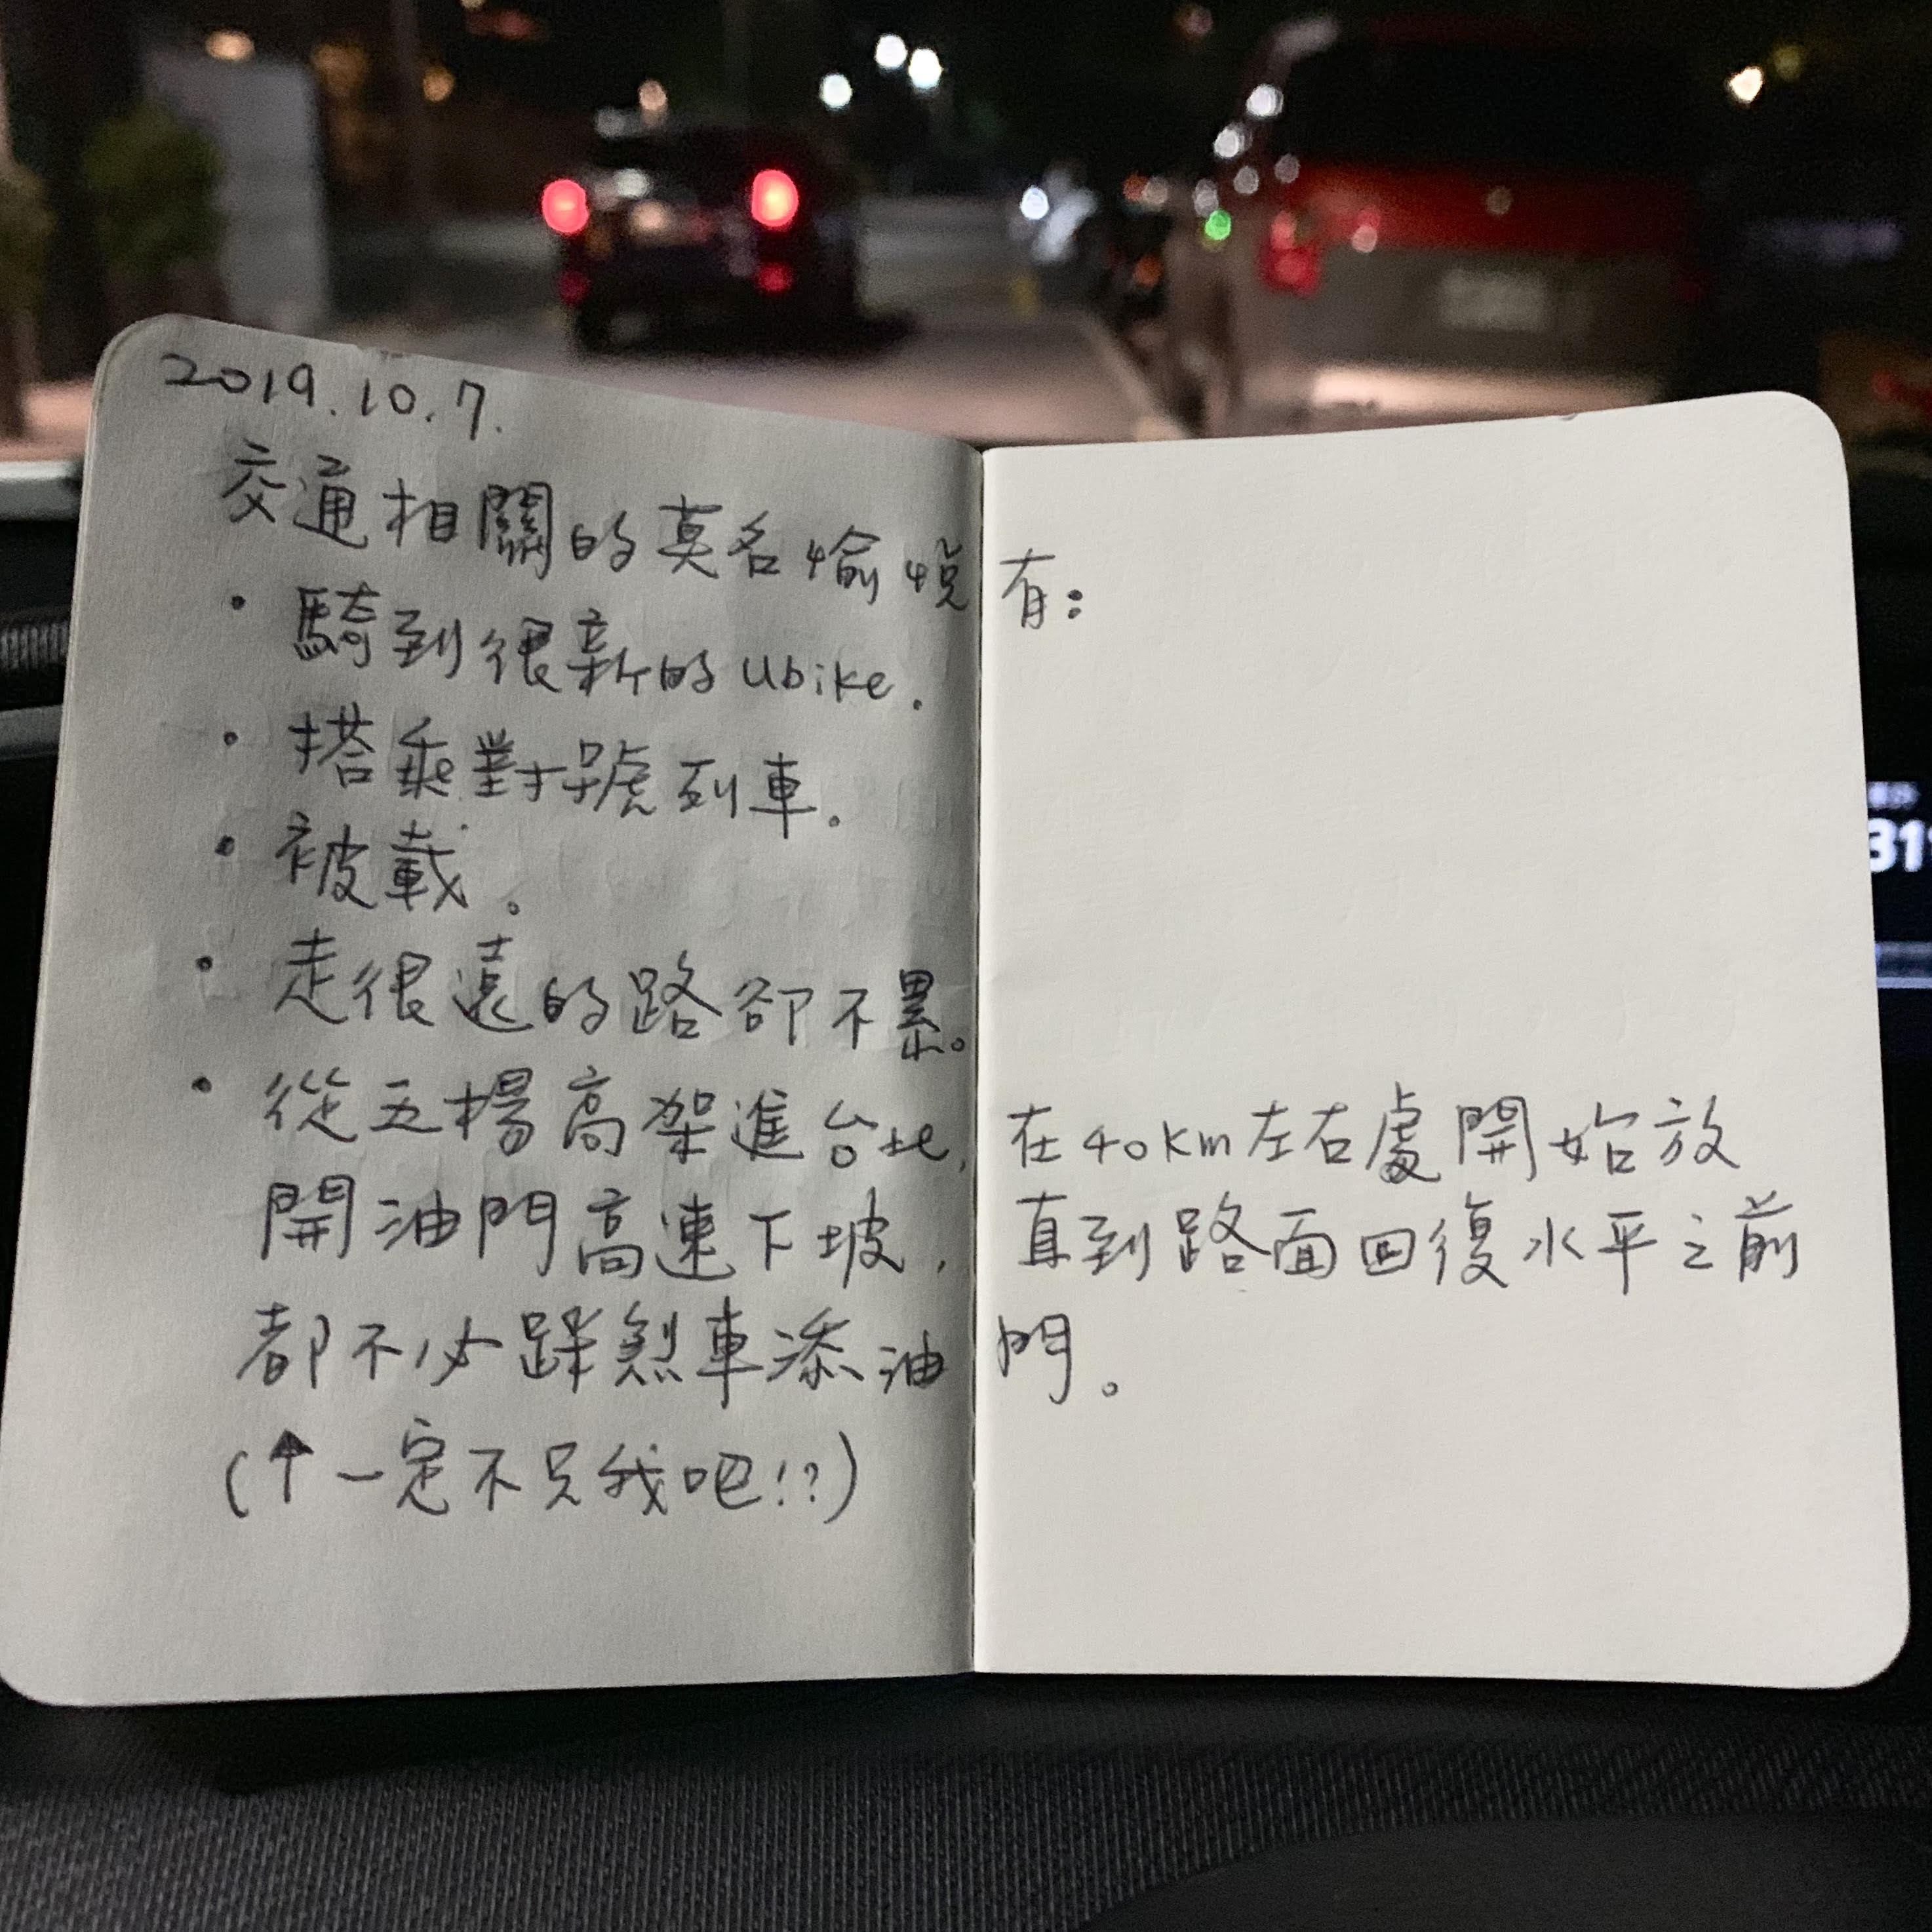 2019.10.7.
交通相關的莫名愉悅有：
・騎到很新的ubike.
・搭乘對號列車.
・被載。
・走很遠的路卻不累。
・從五楊高架進台北，在40km左右處開始放
開油門高速下坡，直到路面回復水平之前
都不必踩煞車添油門。
(↑一定不只我吧!?)
31